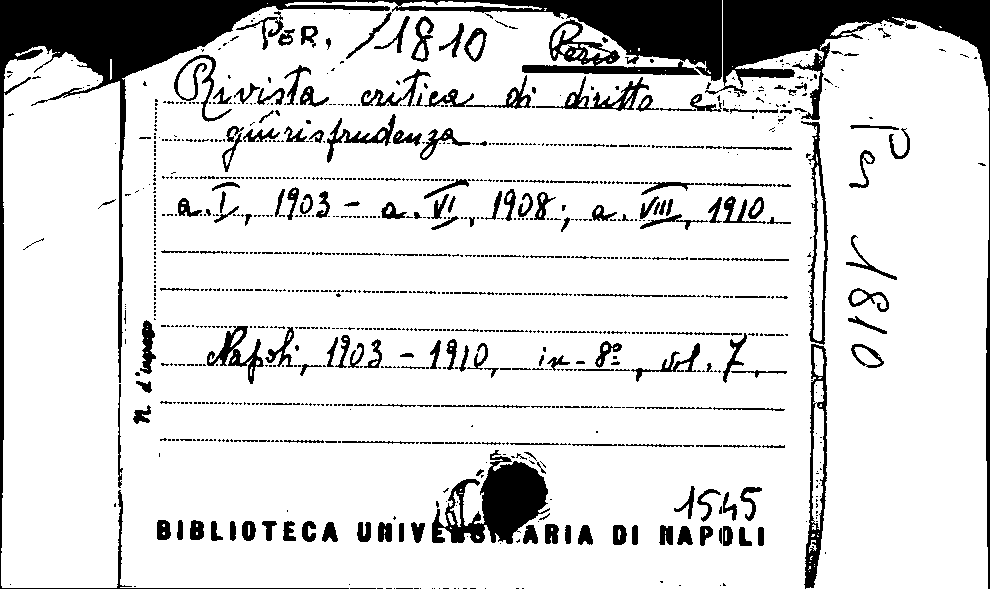 PER. 1810
Rivista critica di diritto e
giurisprudenza.
a. I, 1903 - a. VI, 1908; a. VIII, 1910.
Napoli, 1903 - 1910, in-8º, vol. 7.
N. d'ingresso
1545
BIBLIOTECA UNIVERSITARIA DI NAPOLI
Per 1810